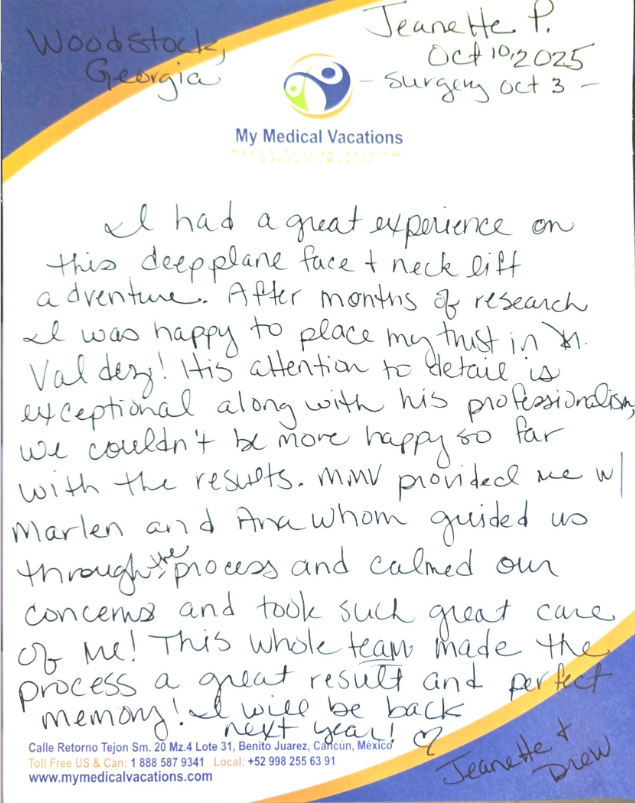 Woodstock,
Georgia
Jeanette P.
Oct 10, 2025
- surgery oct 3 -
My Medical Vacations
I had a great experience on
this deep plane face + neck lift
adventure. After months of research
I was happy to place my trust in Dr.
Valdez! His attention to detail is
exceptional along with his professionalism,
we couldn't be more happy so far
with the results. MMV provided me w/
Marlen and Ana whom guided us
through the process and calmed our
concerns and took such great care
of me! This whole team made the
process a great result and perfect
memory! I will be back
next year! ♡
Calle Retorno Tejon Sm. 20 Mz.4 Lote 31, Benito Juarez, Cancún, México
Toll Free US & Can: 1 888 587 9341 Local: +52 998 255 63 91
www.mymedicalvacations.com
Jeanette +
Drew